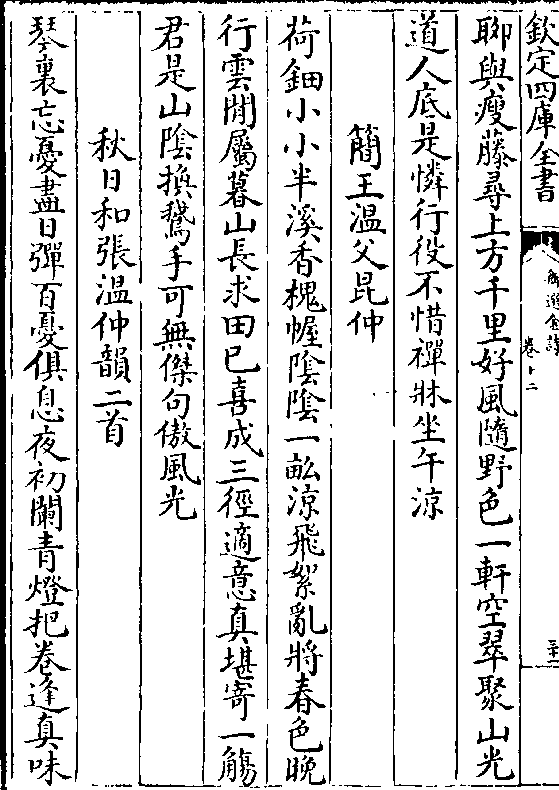 欽定四庫全書
卷十二
聊與瘦藤尋上方千里好風隨野色一軒空翠聚山光
道人底是憐行役不惜禪牀坐午涼
簡王温父昆仲
荷鈿小小半溪香槐幄陰陰一畝涼飛絮亂將春色晚
行雲閒屬暮山長求田已喜成三徑適意真堪寄一觴
君是山陰換鵞手可無傑句傲風光
秋日和張温仲韻二首
琴裏忘憂盡日彈百憂俱息夜初闌青燈把卷逢真味